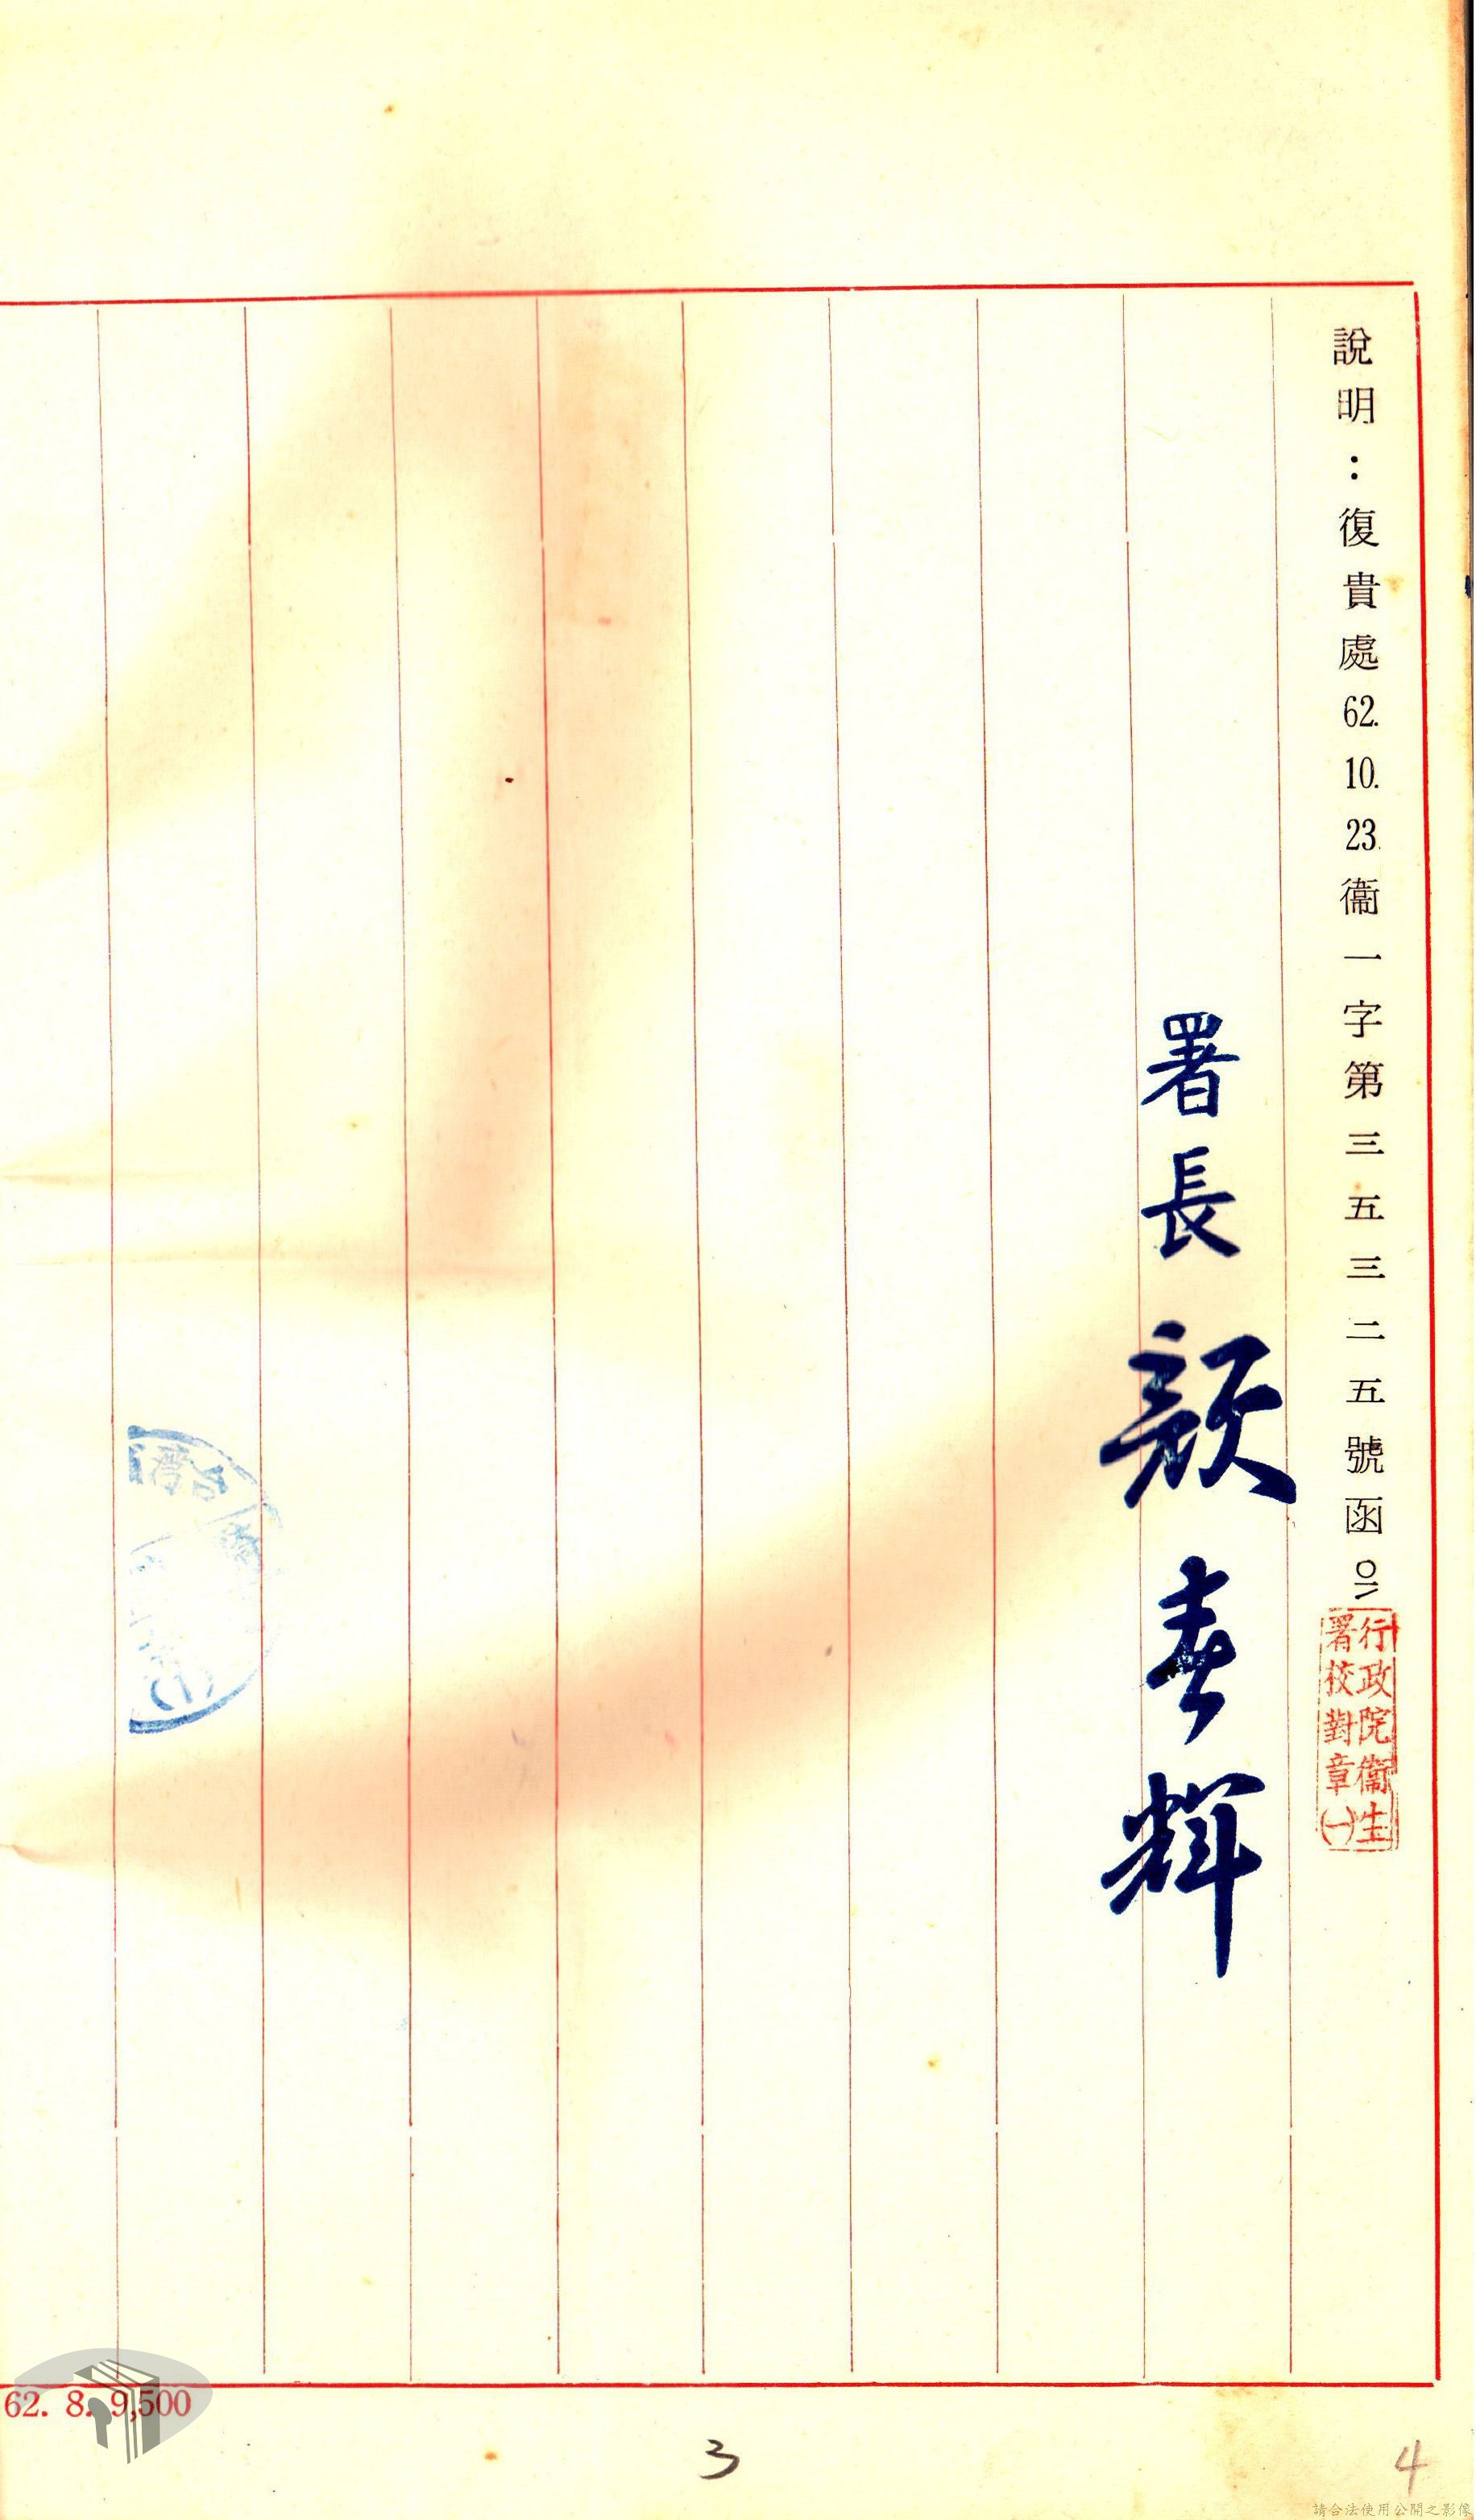 說明：復貴處62.10.23.衞一字第三五三二五號函
行政院衞生
署校對章㈠
署長 顏春輝
62. 8. 9,500
3
4
請合法使用公開之影像